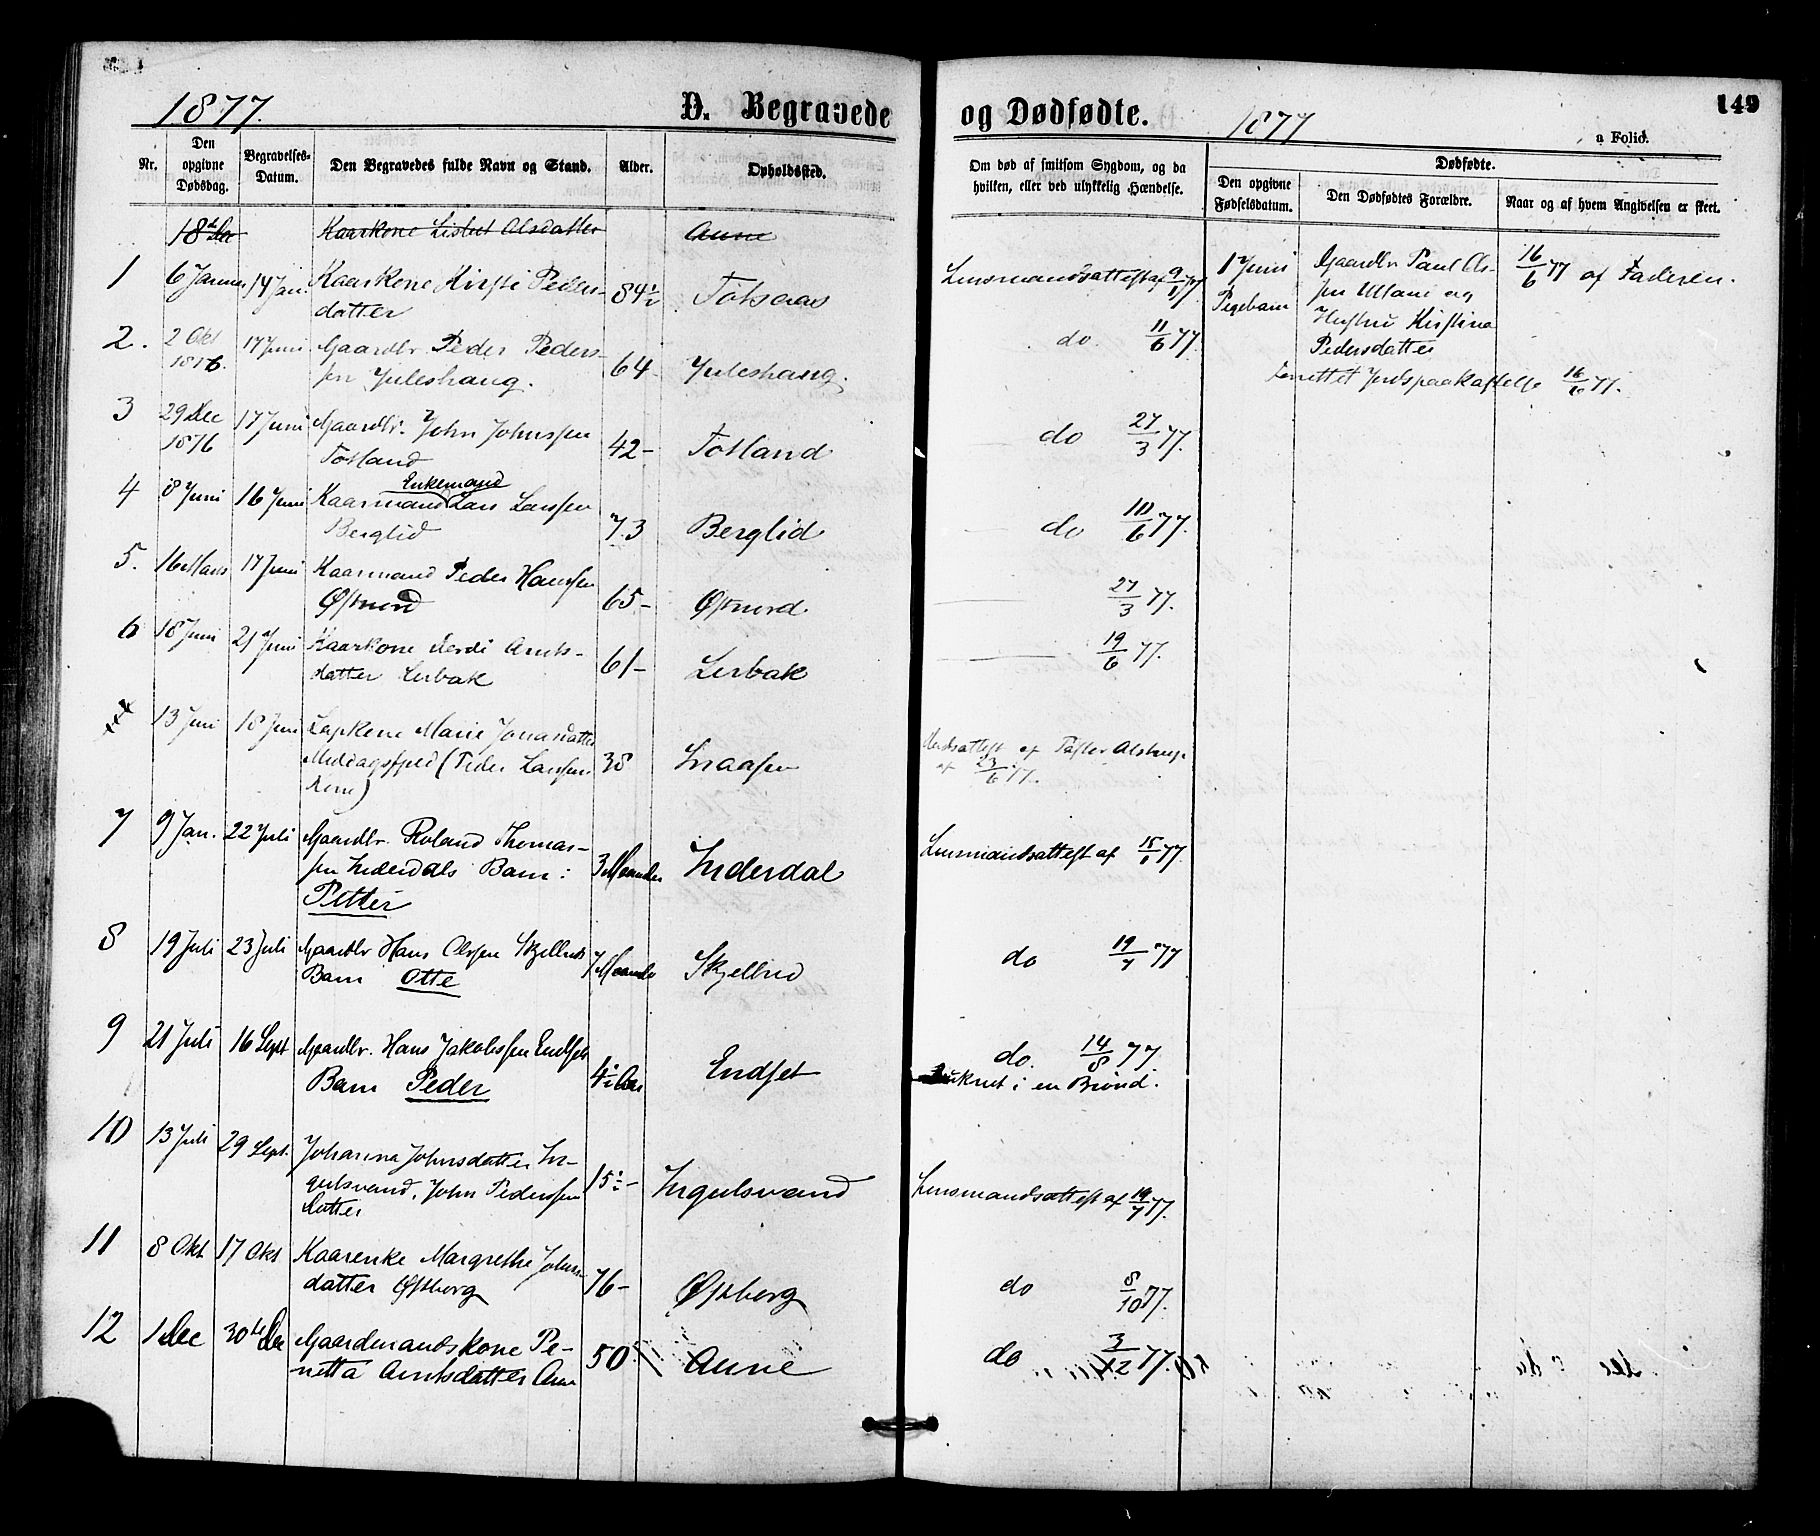 1877.
D. Begravede
og Dødfødte.
1877
149
a Folio.
Nr.
Den opgivne Dødsdag.
Begravelses-Datum.
Den Begravedes fulde Navn og Stand.
Alder.
Opholdssted.
Om død af smitsom Sygdom, og da hvilken, eller ved ulykkelig Hændelse.
Dødfødte.
Den opgivne Fødselsdatum.
Den Dødfødtes Forældre.
Naar og af hvem Angivelsen er skeet.
18de Kaarkone Lisbet Olsdatter Aune
1 6 Januar 14 Jan. Kaarkone Kirsti Peders- 84½ Totsaas Lensmandsattest af 9/1 77.
datter
1 Juni Gaardbr. Paul Ols- 16/6 77 af Faderen.
Pigebarn sen Ulland og
Hustru Kirstina
Pedersdatter
Forrettet Jordspaakastelse 16/6 77.
2. 2 Okt 17 Juni Gaardbr. Peder Peders- 64- Juleshaug. do. 11/6 77.
1876. sen Juleshaug.
3 29 Dec 17 Juni Gaardbr. John Johnssen 42- Totland do 27/3 77.
1876 Totland
4 8 Juni 16 Juni Kaarmand Enkemand Lars Larssen 73 Berglid do 10/6 77.
Berglid
5. 16 Marts 17 Juni Kaarmand Peder Hanssen 65- Østnord 27/3 77.
Østnord
6 18 Juni 21 Juni Kaarkone Arnts- 61- Lerbak 19/6 77.
datter Lerbak
7 13 Juni 18 Juni Lapkone Marie Jonasdatter 38 Snaasen Dødsattest af
Middagsfjeld (Peder Larssens af 23/6 77.
Kone)
7 9 Jan. 22 Juli Gaardbr. Roland Thomas- 3 Maaneder Inderdal Lensmandsattest af 15/1 77.
sen Inderdals Barn:
Petter
8 19 Juli 23 Juli Gaardbr Hans Olssen Skjelbreds 7 Maaneder Skjelbred do 19/7 77
Barn Otte
9 21 Juli 16 Sept Gaardbr. Hans Jakobssen Endsets 4½ Aar Endset do. 14/8 77
Barn Peder Druknet i en Brønd.
10 13 Juli 29 Sept. Johanna Johnsdatter In- 15½- Ingulsvand Lensmandsattest af 19/7 77.
gulsvand, John Pederssen
Datter
11 8 Okt 17 Okt Kaarenke Margrethe Johns- 76- Østborg do 8/10 77.
datter Østborg
12 1 Dec 30te Dec Gaardmandskone Pe- 50 Aune do 3/12 77.
netta Arntsdatter Aune